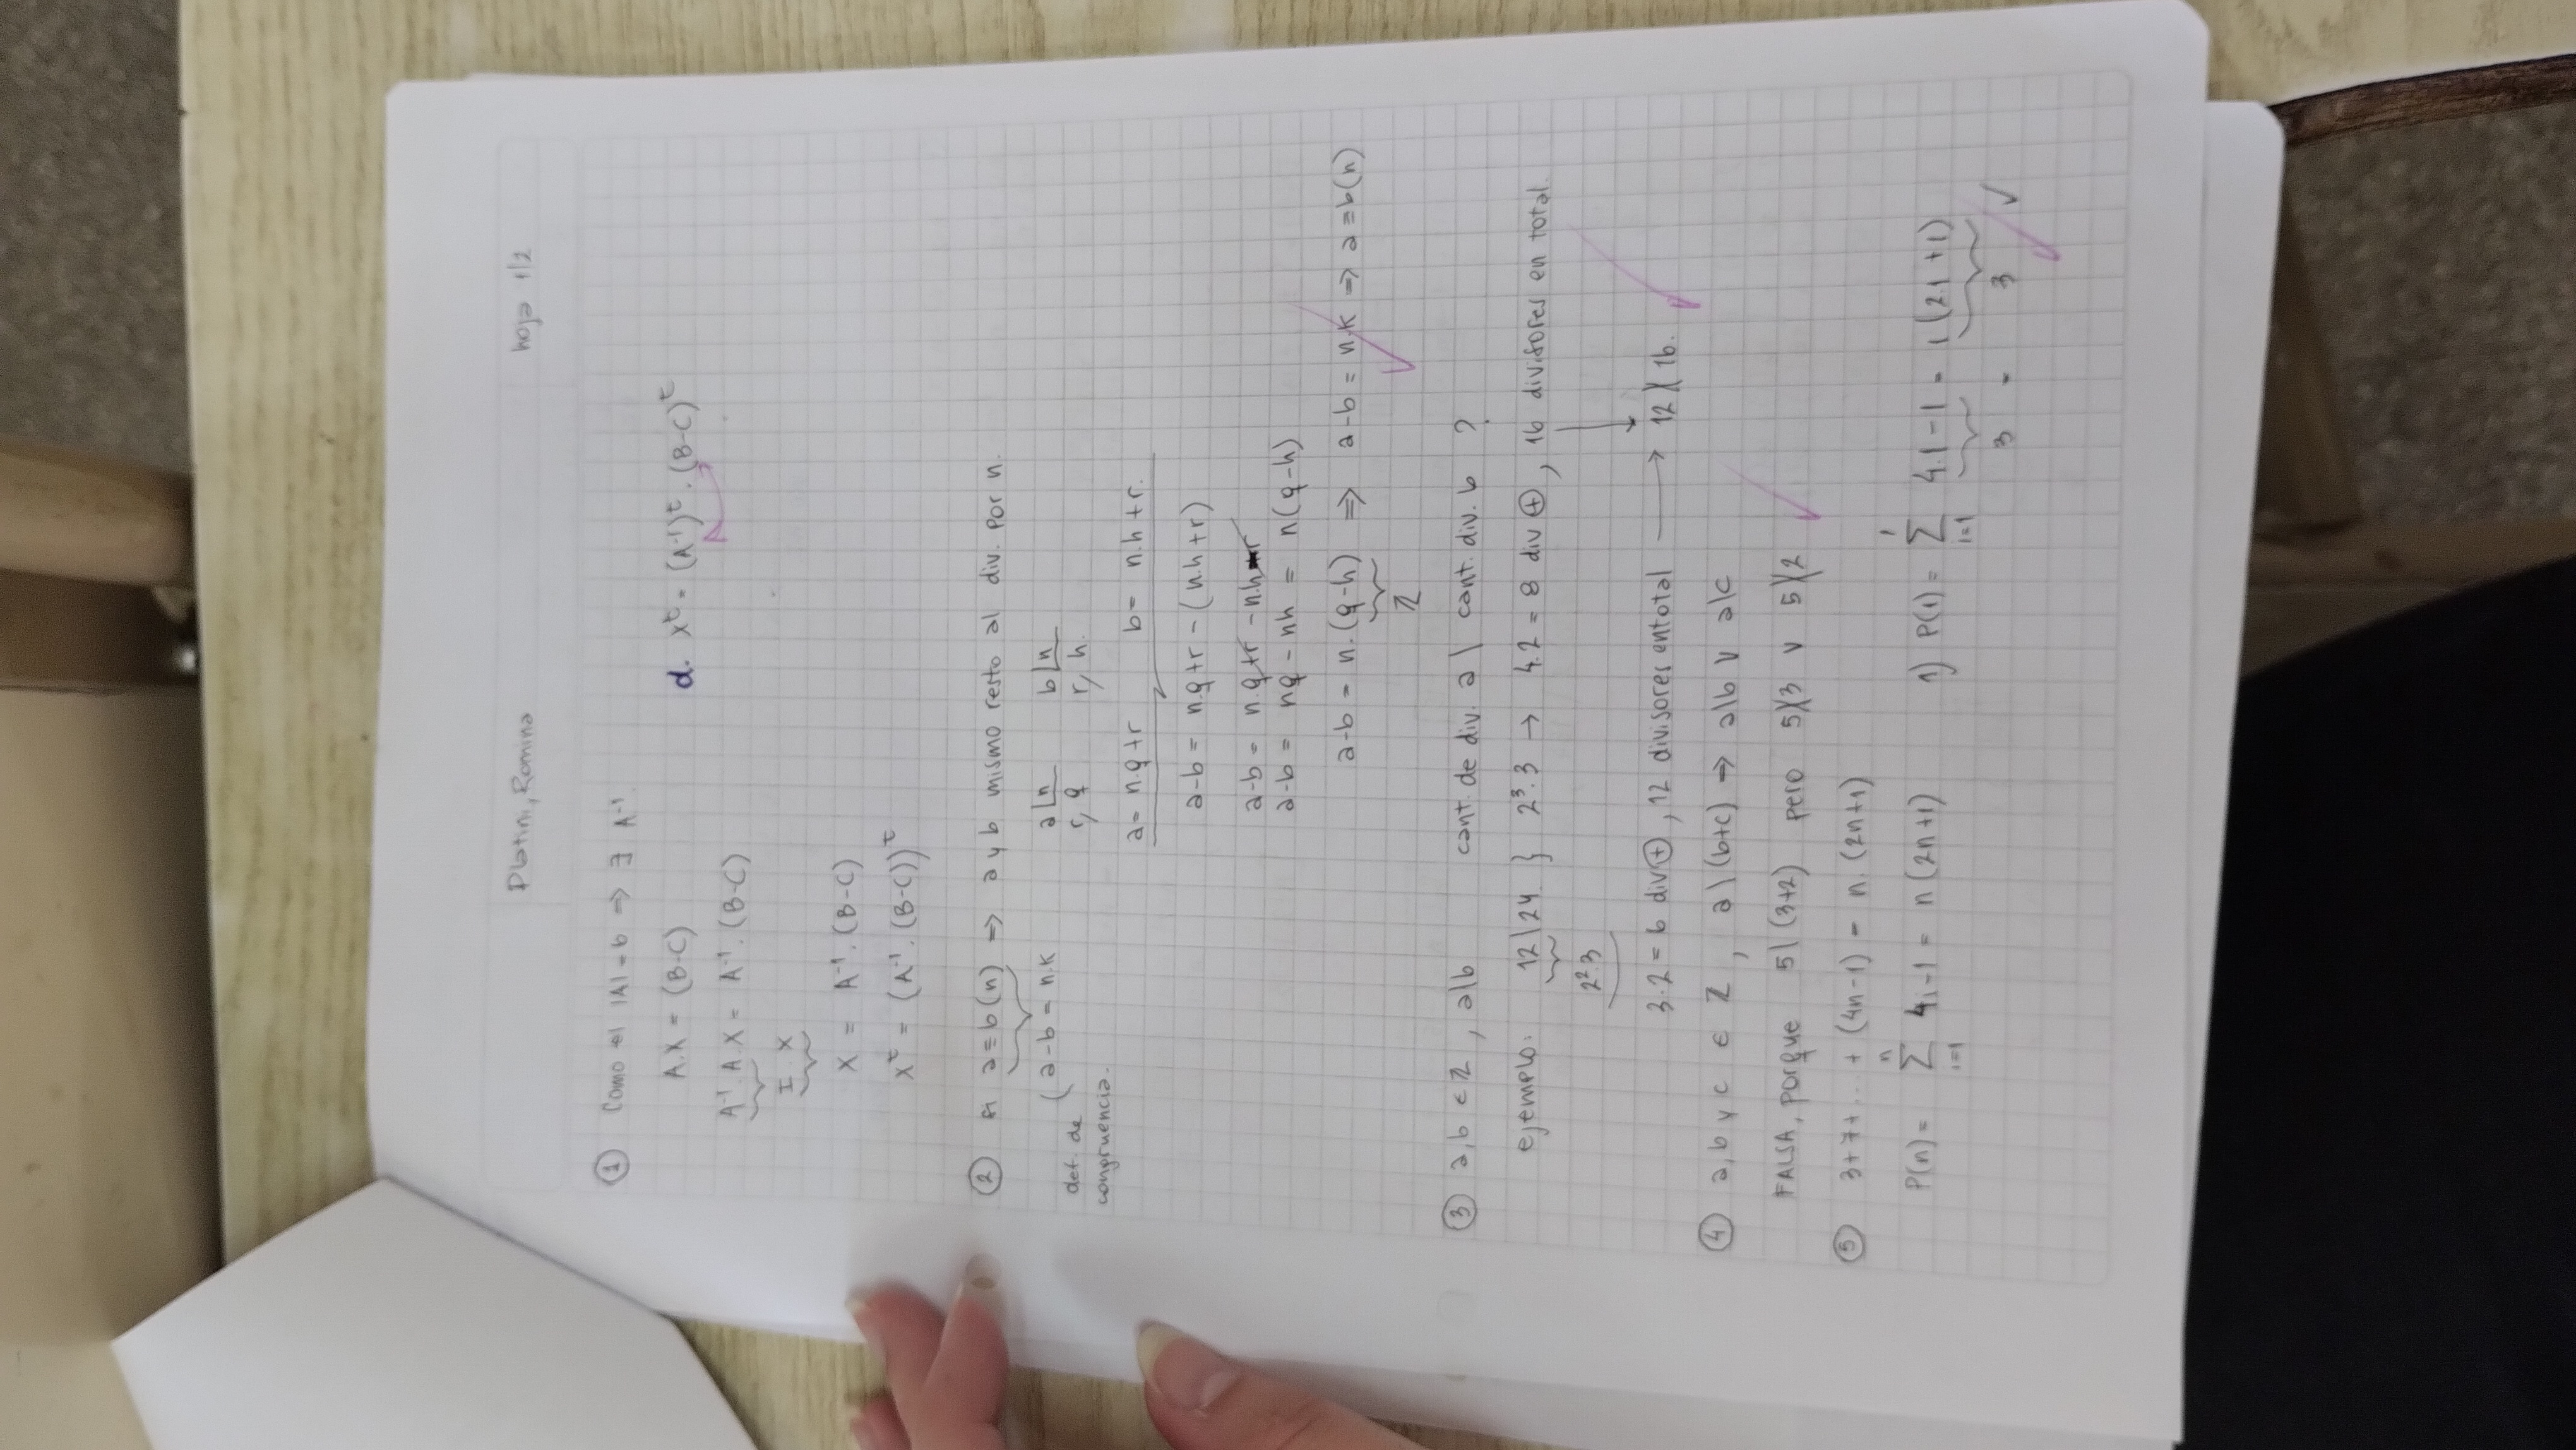 Platini, Romina hoja 1/2
① Como el |A| = 6 ⇒ ∃ A⁻¹.
A.X = (B-C) d. Xᵗ = (A⁻¹)ᵗ . (B-C)ᵗ
A⁻¹ A.X = A⁻¹. (B-C)
I . X
X = A⁻¹. (B-C)
Xᵗ = (A⁻¹. (B-C))ᵗ
② si a≡b(n) ⇒ a y b mismo resto al div. por n.
a-b = n.k a|n b|n
def. de r, q r, h.
congruencia.
a = n.q+r b = n.h+r.
a-b = n.q+r - (n.h+r)
a-b = n.q+r - n.h-r
a-b = nq - nh = n(q-h)
a-b = n.(q-h) ⇒ a-b = n.k ⇒ a≡b(n)
ℤ
③ a,b ∈ ℤ, a|b cant. de div. a | cant. div. b ?
ejemplo: 12|24. } 2³.3 → 4.2 = 8 div ⊕, 16 divisores en total.
2².3
3.2 = 6 div ⊕, 12 divisores en total → 12 ∤ 16.
④ a,b y c ∈ ℤ, a|(b+c) ⇒ a|b ∨ a|c
FALSA, porque 5|(3+2) pero 5∤3 ∨ 5∤2
⑤ 3+7+... + (4n-1) = n.(2n+1)
P(n) = n ∑ i=1 4i-1 = n(2n+1) 1) P(1) = 1 ∑ i=1 4.1-1 = 1(2.1+1)
3 = 3 ✓